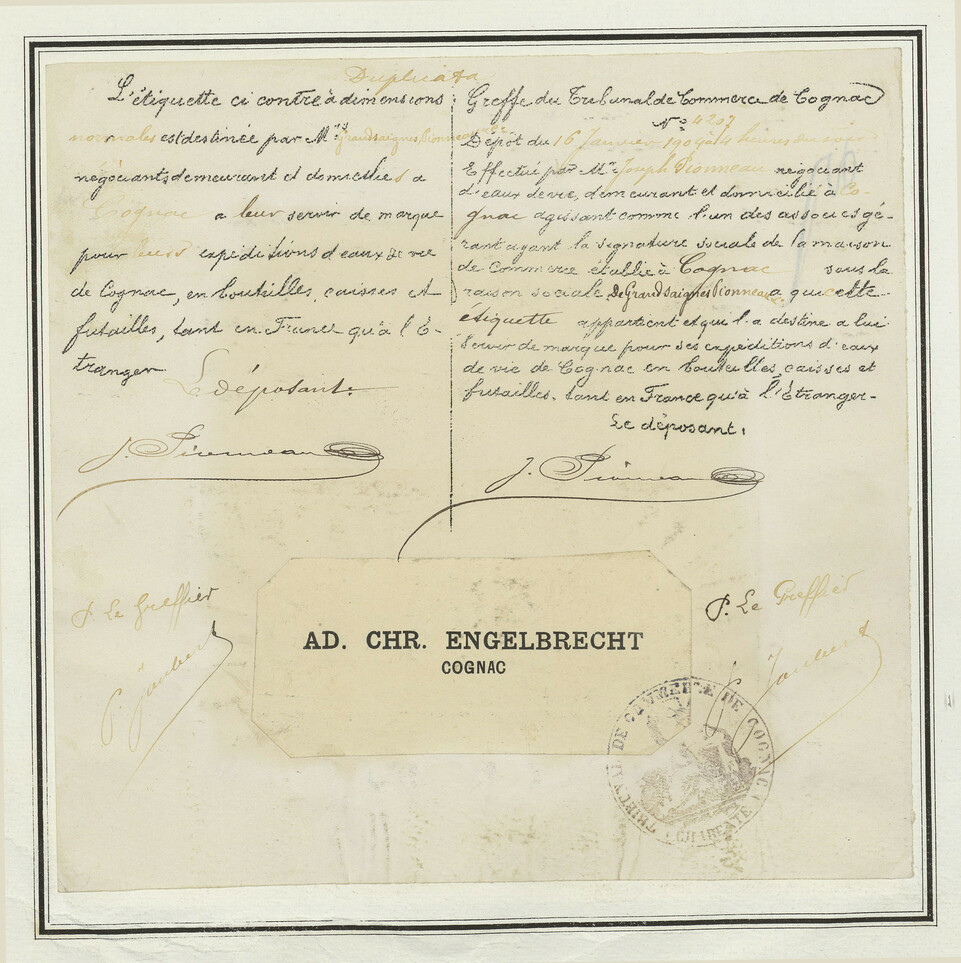 Duplicata
L'étiquette ci contre à dimensions
normales est destinée par Mrs de Grandsaignes, Pionneau
négociants demeurant et domiciliés à
Cognac a leur servir de marque
pour leurs expéditions d'eaux de vie
de Cognac, en bouteilles, caisses et
futailles, tant en France qu'à l'É-
tranger
Le déposant.
J. Pionneau
P. Le Greffier
P. Jaubert
Greffe du Tribunal de Commerce de Cognac
No 4207
Dépôt du 16 Janvier 1904 à 4 heures du soir
Effectué par Mr Joseph Pionneau négociant
d'eaux de vie, demeurant et domicilié à Co-
gnac agissant comme l'un des associés gé-
rant ayant la signature sociale de la maison
de Commerce établie à Cognac sous la
raison sociale De Grandsaignes Pionneau a qui cette
étiquette appartient et qui l'a destine a lui
servir de marque pour ses expéditions d'eaux
de vie de Cognac en bouteilles, caisses et
futailles, tant en France qu'à l'Étranger-
Le déposant.
J. Pionneau
P. Le Greffier
Jaubert
AD. CHR. ENGELBRECHT
COGNAC
TRIBUNAL DE COMMERCE DE COGNAC
(CHARENTE)